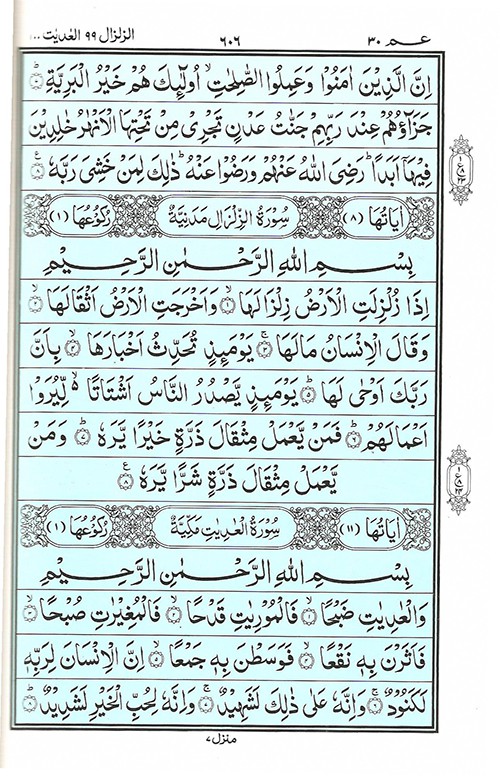 عـم ٣٠ ٦٠٦ الزلزال ٩٩ العٰديٰت ..
اِنَّ الَّذِيْنَ اٰمَنُوْا وَعَمِلُوا الصّٰلِحٰتِ ۙ اُولٰٓئِكَ هُمْ خَيْرُ الْبَرِيَّةِ ؕ
جَزَآؤُهُمْ عِنْدَ رَبِّهِمْ جَنّٰتُ عَدْنٍ تَجْرِيْ مِنْ تَحْتِهَا الْاَنْهٰرُ خٰلِدِيْنَ
فِيْهَاۤ اَبَدًا ؕ رَضِيَ اللّٰهُ عَنْهُمْ وَرَضُوْا عَنْهُ ؕ ذٰلِكَ لِمَنْ خَشِيَ رَبَّهٗ ﴿٨﴾
اٰيَاتُهَا (٨) سُوْرَةُ الزِّلْزَالِ مَدَنِيَّةٌ رُكُوْعُهَا (١)
بِسْمِ اللّٰهِ الرَّحْمٰنِ الرَّحِيْمِ
اِذَا زُلْزِلَتِ الْاَرْضُ زِلْزَالَهَا ﴿١﴾ وَاَخْرَجَتِ الْاَرْضُ اَثْقَالَهَا ﴿٢﴾
وَقَالَ الْاِنْسَانُ مَالَهَا ﴿٣﴾ يَوْمَئِذٍ تُحَدِّثُ اَخْبَارَهَا ﴿٤﴾ بِاَنَّ
رَبَّكَ اَوْحٰى لَهَا ﴿٥﴾ يَوْمَئِذٍ يَّصْدُرُ النَّاسُ اَشْتَاتًا ۙ لِّيُرَوْا
اَعْمَالَهُمْ ﴿٦﴾ فَمَنْ يَّعْمَلْ مِثْقَالَ ذَرَّةٍ خَيْرًا يَّرَهٗ ﴿٧﴾ وَمَنْ
يَّعْمَلْ مِثْقَالَ ذَرَّةٍ شَرًّا يَّرَهٗ ﴿٨﴾
اٰيَاتُهَا (١١) سُوْرَةُ الْعٰدِيٰتِ مَكِّيَّةٌ رُكُوْعُهَا (١)
بِسْمِ اللّٰهِ الرَّحْمٰنِ الرَّحِيْمِ
وَالْعٰدِيٰتِ ضَبْحًا ﴿١﴾ فَالْمُوْرِيٰتِ قَدْحًا ﴿٢﴾ فَالْمُغِيْرٰتِ صُبْحًا ﴿٣﴾
فَاَثَرْنَ بِهٖ نَقْعًا ﴿٤﴾ فَوَسَطْنَ بِهٖ جَمْعًا ﴿٥﴾ اِنَّ الْاِنْسَانَ لِرَبِّهٖ
لَكَنُوْدٌ ﴿٦﴾ وَاِنَّهٗ عَلٰى ذٰلِكَ لَشَهِيْدٌ ﴿٧﴾ وَاِنَّهٗ لِحُبِّ الْخَيْرِ لَشَدِيْدٌ ﴿٨﴾
منزل ٧